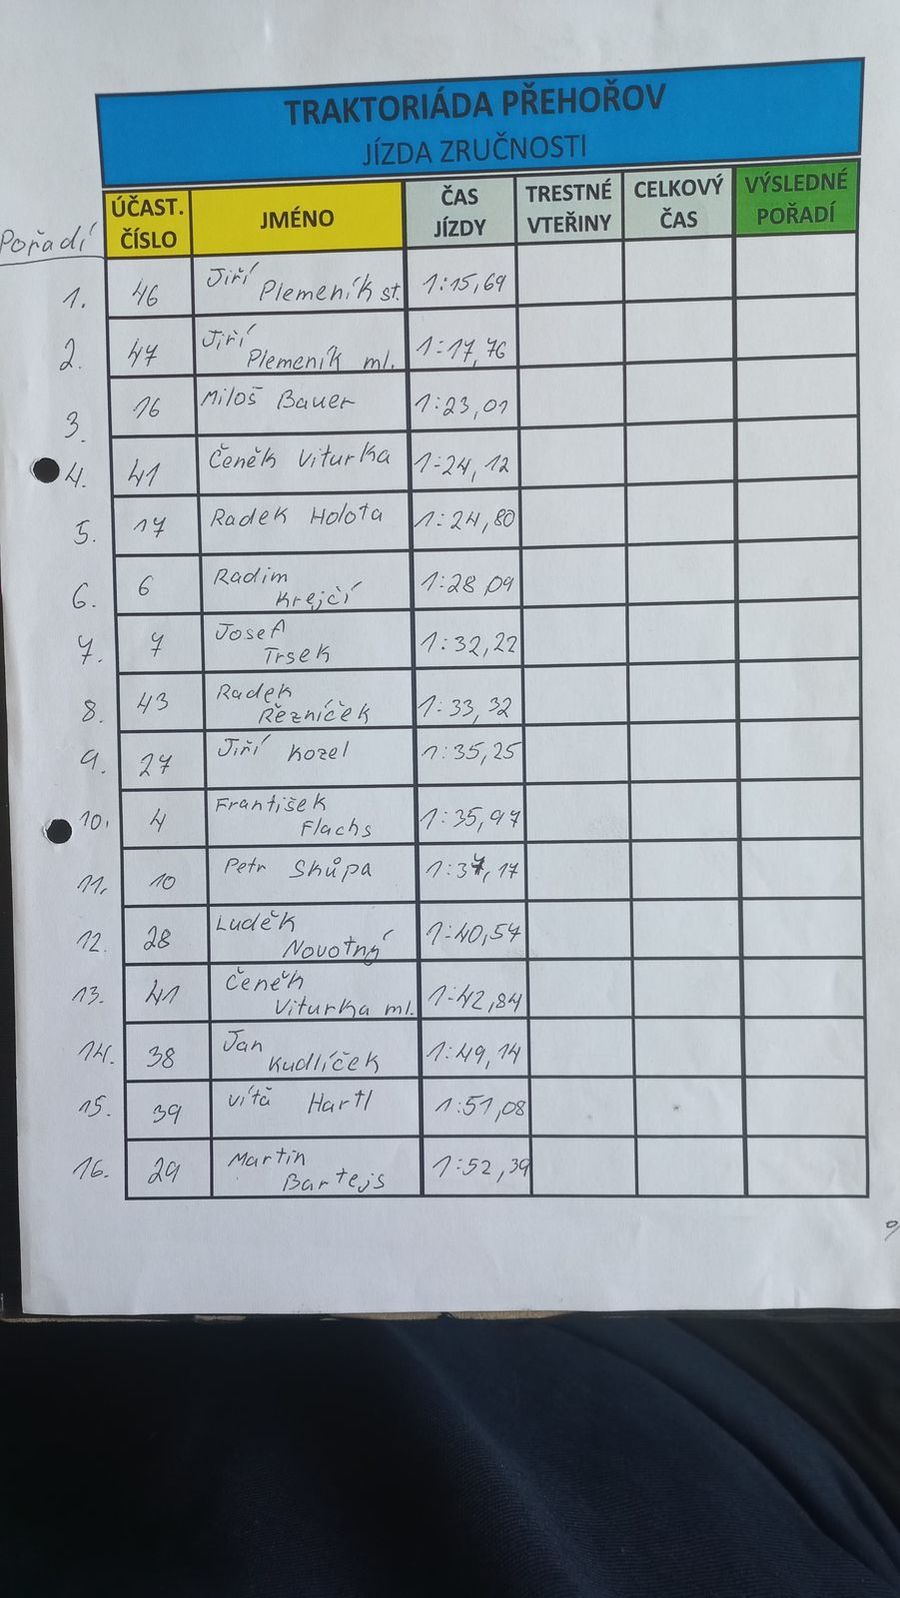 TRAKTORIÁDA PŘEHOŘOV
JÍZDA ZRUČNOSTI
Pořadí ÚČAST. ČÍSLO JMÉNO ČAS JÍZDY TRESTNÉ VTEŘINY CELKOVÝ ČAS VÝSLEDNÉ POŘADÍ
1. 46 Jiří Plemeník st. 1:15,69
2. 47 Jiří Plemeník ml. 1:17,76
3. 16 Miloš Bauer 1:23,01
4. 41 Čeněk Viturka 1:24,12
5. 17 Radek Holota 1:24,80
6. 6 Radim Krejčí 1:28,09
7. 7 Josef Trsek 1:32,22
8. 43 Radek Řezníček 1:33,32
9. 27 Jiří Kozel 1:35,25
10. 4 František Flachs 1:35,97
11. 10 Petr Skůpa 1:37,17
12. 28 Luděk Novotný 1:40,57
13. 41 Čeněk Viturka ml. 1:42,84
14. 38 Jan Kudlíček 1:49,14
15. 39 Víťa Hartl 1:51,08
16. 29 Martin Bartejs 1:52,39